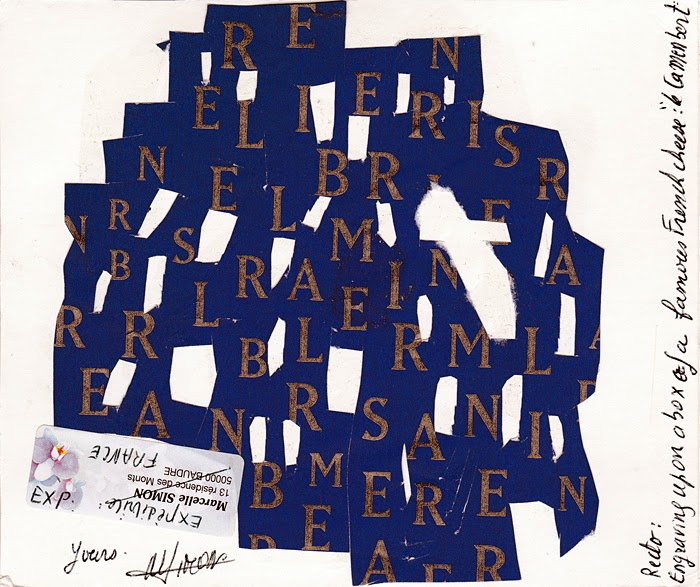 R E N
E L I E R I S
N E L B R R
N R S M E
B L R A E I N A
R R B L R M L
E A N R S A N I
B M E R E N
E A E R
Exp:
Expéditrice:
Marcelle SIMON
13 résidence des Monts
50000 BAUDRE
FRANCE
Yours.
MSimon
Recto:
Engraving upon a box of a famous French cheese: "le Camembert"